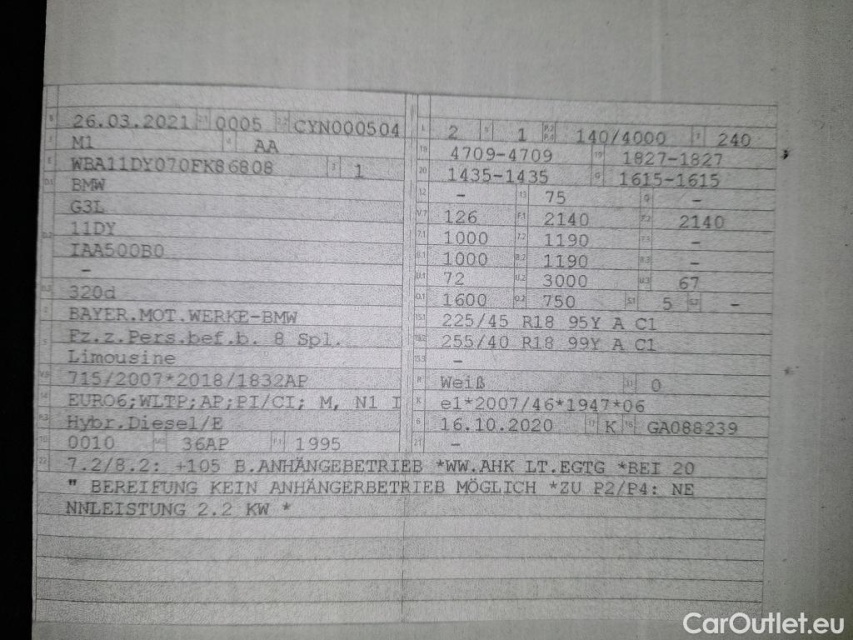 26.03.2021 0005 CYN000504
M1 AA
WBA11DY070FK86808 1
BMW
G3L
11DY
IAA500B0
–
320d
BAYER.MOT.WERKE-BMW
Fz.z.Pers.bef.b. 8 Spl.
Limousine
715/2007*2018/1832AP
EURO6;WLTP;AP;PI/CI; M, N1 I
Hybr.Diesel/E
0010 36AP 1995
2 1 140/4000 240
4709-4709 1827-1827
1435-1435 1615-1615
– 75 –
126 2140 2140
1000 1190 –
1000 1190 –
72 3000 67
1600 750 5 –
225/45 R18 95Y A C1
255/40 R18 99Y A C1
–
Weiß 0
e1*2007/46*1947*06
16.10.2020 K GA088239
–
7.2/8.2: +105 B.ANHÄNGEBETRIEB *WW.AHK LT.EGTG *BEI 20
" BEREIFUNG KEIN ANHÄNGERBETRIEB MÖGLICH *ZU P2/P4: NE
NNLEISTUNG 2.2 KW *
CarOutlet.eu